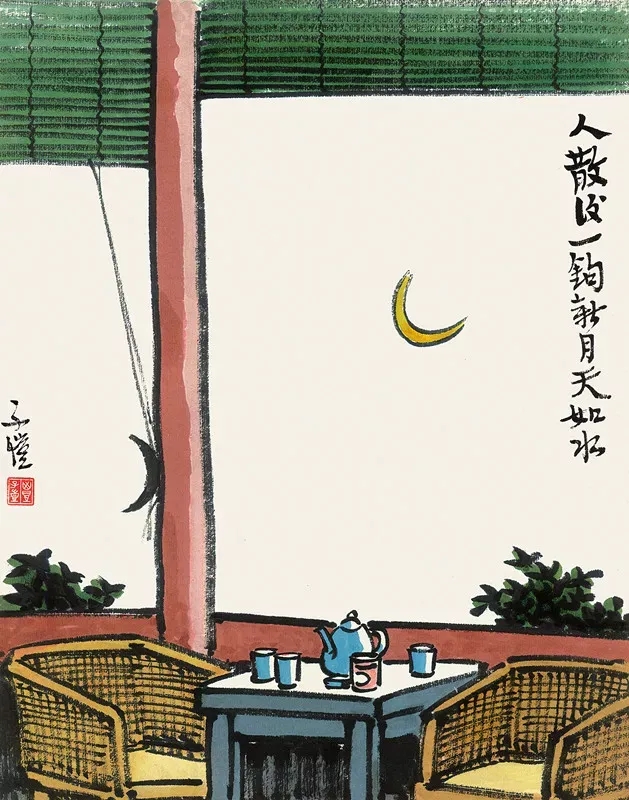 人散後一鈎新月天如水
子愷